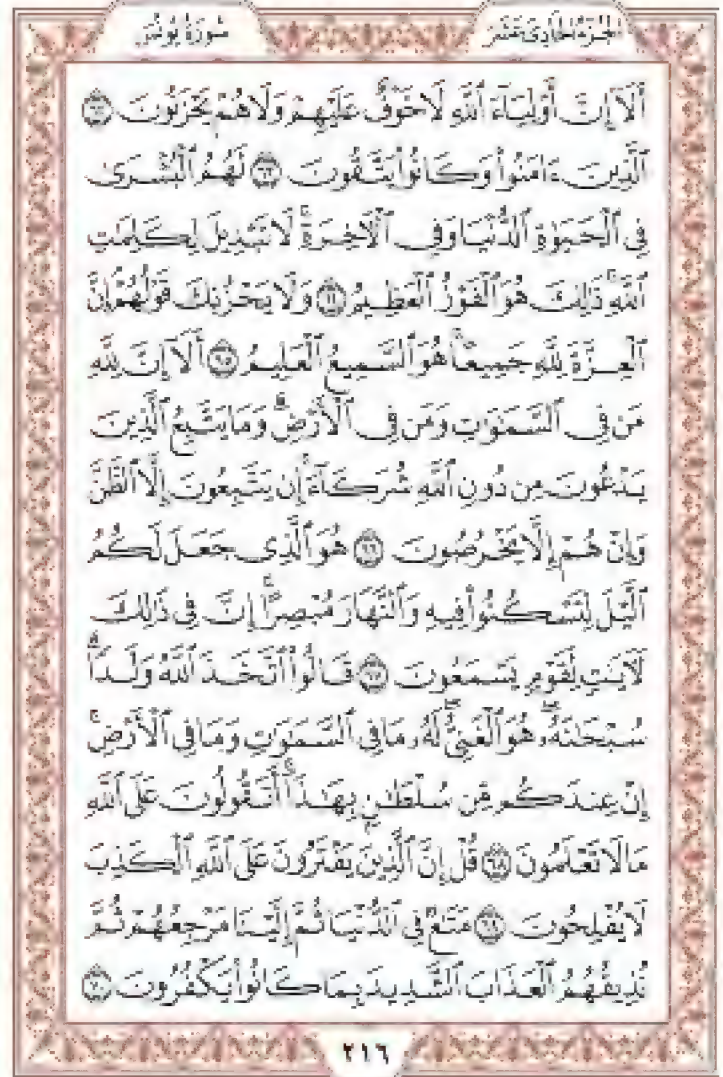 سُورَةُ يُونُسَ
الجُزْءُ الحَادِي عَشَرَ
أَلَآ إِنَّ أَوْلِيَآءَ ٱللَّهِ لَا خَوْفٌ عَلَيْهِمْ وَلَا هُمْ يَحْزَنُونَ ٦٢
ٱلَّذِينَ ءَامَنُوا۟ وَكَانُوا۟ يَتَّقُونَ ٦٣ لَهُمُ ٱلْبُشْرَىٰ
فِى ٱلْحَيَوٰةِ ٱلدُّنْيَا وَفِى ٱلْءَاخِرَةِ ۚ لَا تَبْدِيلَ لِكَلِمَٰتِ
ٱللَّهِ ۚ ذَٰلِكَ هُوَ ٱلْفَوْزُ ٱلْعَظِيمُ ٦٤ وَلَا يَحْزُنكَ قَوْلُهُمْ ۘ إِنَّ
ٱلْعِزَّةَ لِلَّهِ جَمِيعًا ۚ هُوَ ٱلسَّمِيعُ ٱلْعَلِيمُ ٦٥ أَلَآ إِنَّ لِلَّهِ
مَن فِى ٱلسَّمَٰوَٰتِ وَمَن فِى ٱلْأَرْضِ ۗ وَمَا يَتَّبِعُ ٱلَّذِينَ
يَدْعُونَ مِن دُونِ ٱللَّهِ شُرَكَآءَ ۚ إِن يَتَّبِعُونَ إِلَّا ٱلظَّنَّ
وَإِنْ هُمْ إِلَّا يَخْرُصُونَ ٦٦ هُوَ ٱلَّذِى جَعَلَ لَكُمُ
ٱلَّيْلَ لِتَسْكُنُوا۟ فِيهِ وَٱلنَّهَارَ مُبْصِرًا ۚ إِنَّ فِى ذَٰلِكَ
لَءَايَٰتٍ لِّقَوْمٍ يَسْمَعُونَ ٦٧ قَالُوا۟ ٱتَّخَذَ ٱللَّهُ وَلَدًا ۗ
سُبْحَٰنَهُۥ ۖ هُوَ ٱلْغَنِىُّ ۖ لَهُۥ مَا فِى ٱلسَّمَٰوَٰتِ وَمَا فِى ٱلْأَرْضِ ۚ
إِنْ عِندَكُم مِّن سُلْطَٰنٍۭ بِهَٰذَآ ۚ أَتَقُولُونَ عَلَى ٱللَّهِ
مَا لَا تَعْلَمُونَ ٦٨ قُلْ إِنَّ ٱلَّذِينَ يَفْتَرُونَ عَلَى ٱللَّهِ ٱلْكَذِبَ
لَا يُفْلِحُونَ ٦٩ مَتَٰعٌ فِى ٱلدُّنْيَا ثُمَّ إِلَيْنَا مَرْجِعُهُمْ ثُمَّ
نُذِيقُهُمُ ٱلْعَذَابَ ٱلشَّدِيدَ بِمَا كَانُوا۟ يَكْفُرُونَ ٧٠
٢١٦